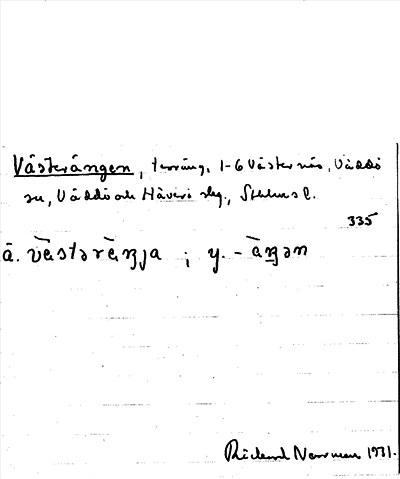 Västerängen, terräng, 1-6 Västernäs, Väddö
sn, Väddö och Häverö slg., Sthlms l.
335
ä. västəräŋja ; y. -äŋən
Rickard Norrman 1931.